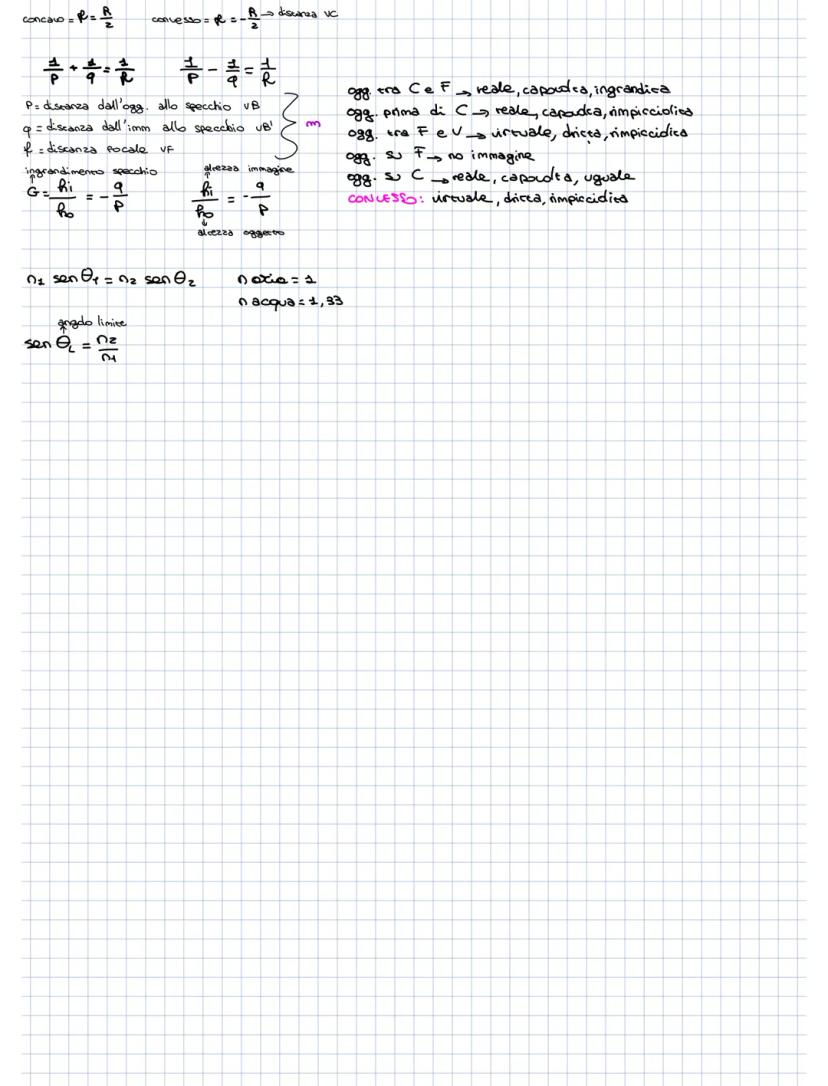 concavo = f = R/2   convesso = f = - R/2 → distanza VC
1/p + 1/q = 1/f   1/p - 1/q = 1/f
P = distanza dall'ogg. allo specchio VB
q = distanza dall'imm allo specchio VB'   m
f = distanza focale VF
ingrandimento specchio   altezza immagine
G = hi/ho = - q/p   hi/ho = - q/p
altezza oggetto
ogg. tra C e F → reale, capovolta, ingrandita
ogg. prima di C → reale, capovolta, rimpicciolita
ogg. tra F e V → virtuale, dritta, rimpicciolita
ogg. su F → no immagine
ogg. su C → reale, capovolta, uguale
CONVESSO: virtuale, dritta, rimpicciolita
n1 sen θ1 = n2 sen θ2   n aria = 1
n acqua = 1,33
angolo limite
sen θL = n2/n1